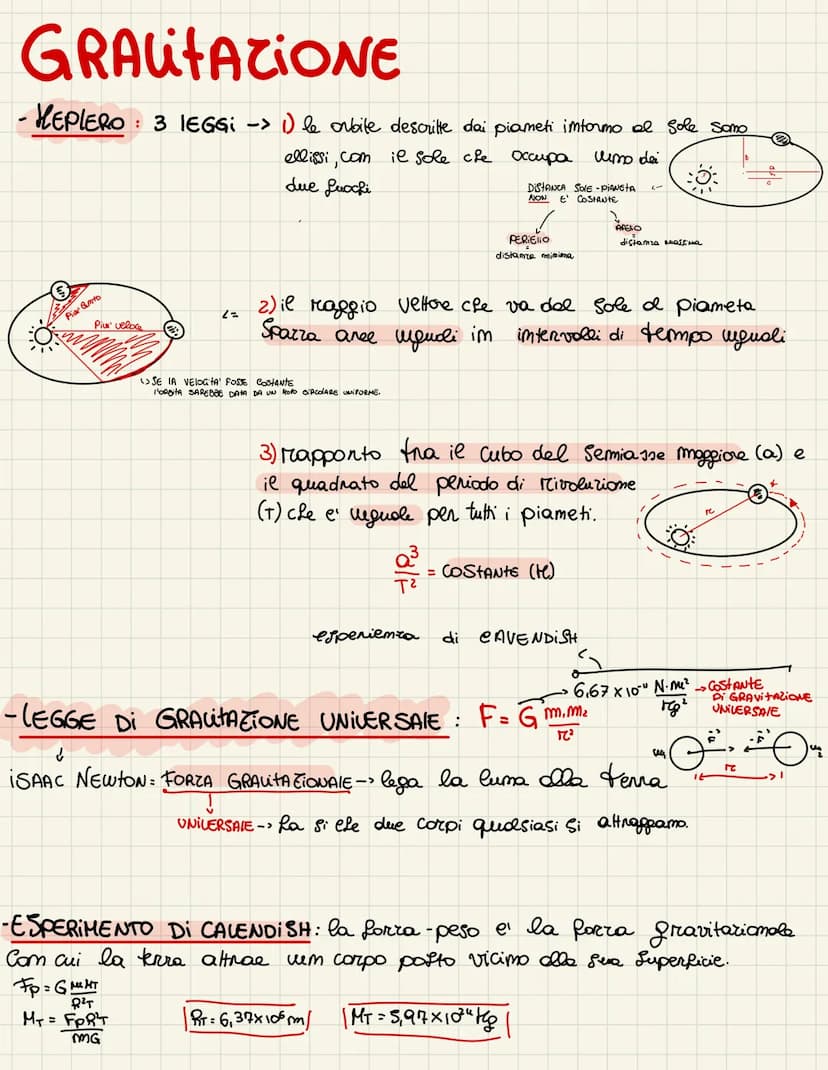 GRAVITAZIONE
- KEPLERO: 3 LEGGI -> 1) le orbite descritte dai pianeti intorno al sole sono
ellissi, con il sole che occupa uno dei
due fuochi
DISTANZA SOLE-PIANETA
NON E' COSTANTE
PERIELIO
distanza minima
AFELIO
distanza massima
b
a
c
2) il raggio vettore che va dal sole al pianeta
Spazza aree uguali in intervalli di tempo uguali
Piu' lento
Piu' veloce
SE LA VELOCITA' FOSSE COSTANTE
L'ORBITA SAREBBE DATA DA UN MOTO CIRCOLARE UNIFORME.
3) rapporto tra il cubo del semiasse maggiore (a) e
il quadrato del periodo di rivoluzione
(T) che e' uguale per tutti i pianeti.
r
t
a³/T² = COSTANTE (K)
esperienza di CAVENDISH
6,67 x 10⁻¹¹ N·m²/kg² -> COSTANTE
DI GRAVITAZIONE
UNIVERSALE
- LEGGE DI GRAVITAZIONE UNIVERSALE: F = G m₁m₂/r²
m₁ F -F m₂
r
ISAAC NEWTON = FORZA GRAVITAZIONALE -> lega la luna alla terra
UNIVERSALE -> fa si che due corpi qualsiasi si attraggano.
- ESPERIMENTO DI CAVENDISH: la forza-peso e' la forza gravitazionale
Con cui la terra attrae un corpo posto vicino alla sua superficie.
Fp = G mMT/R²T
MT = FpR²T/mG
RT = 6,37x10⁶ m
MT = 5,97x10²⁴ Kg